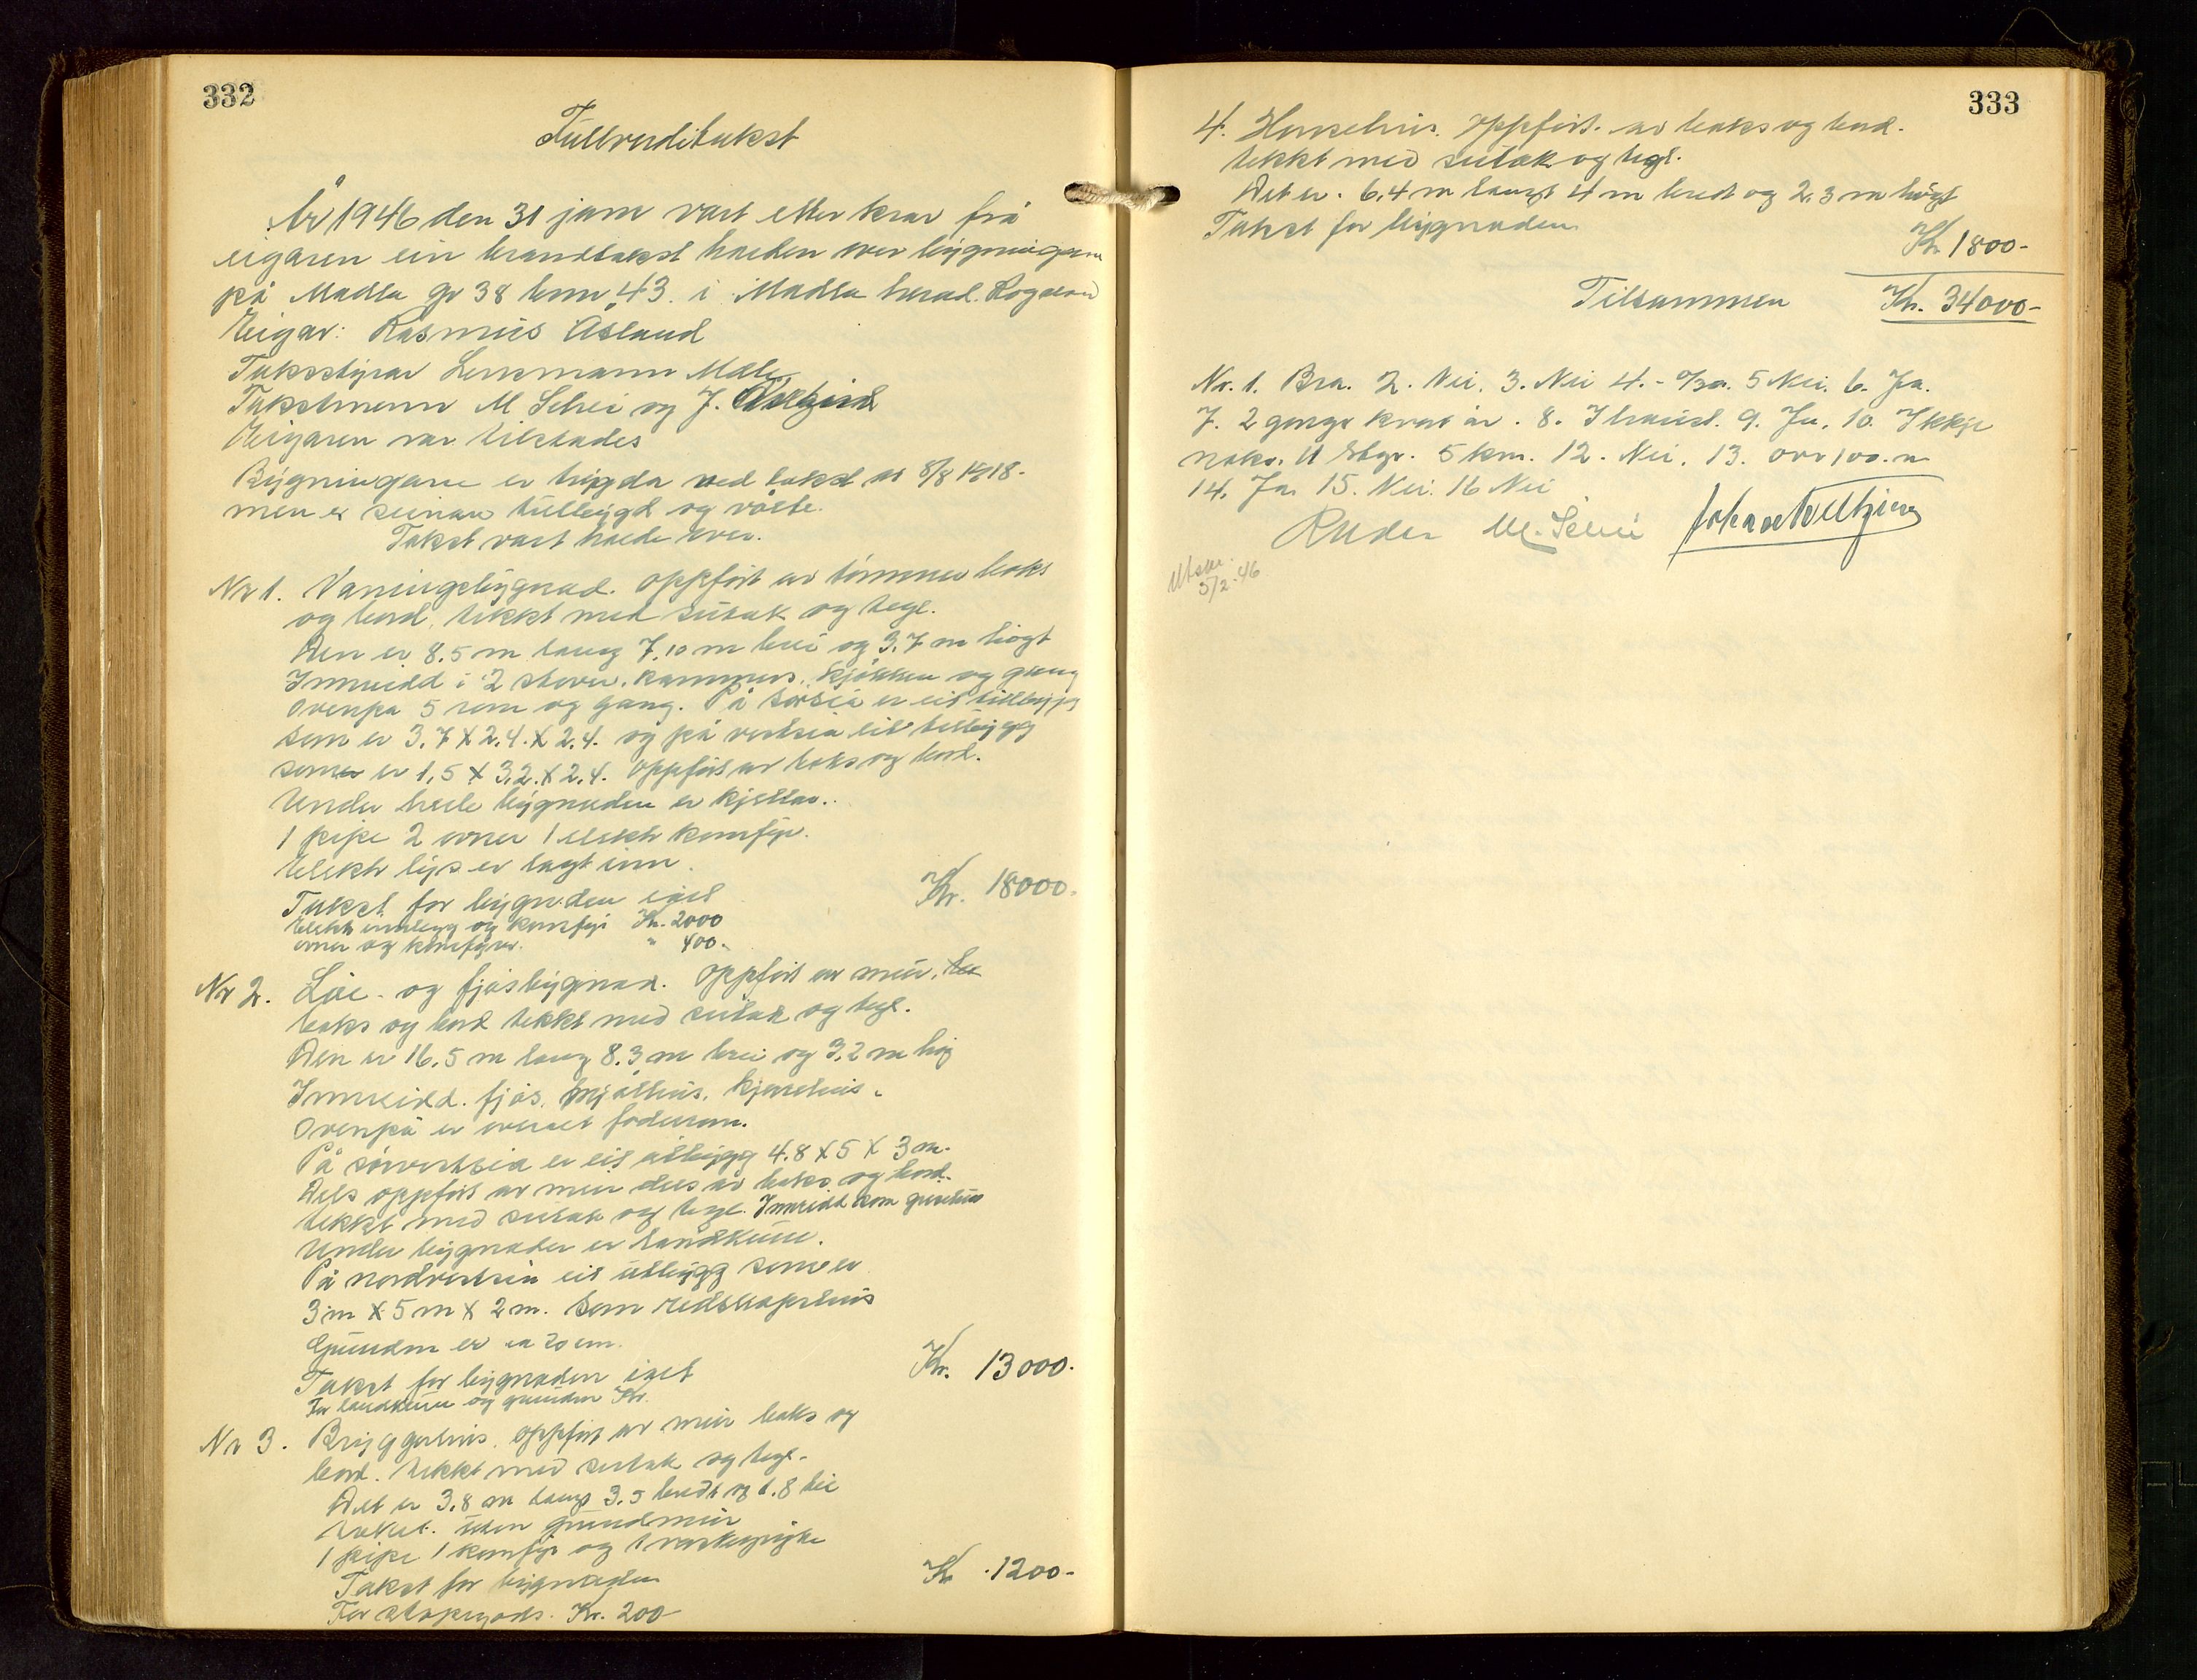 332
Fullverditakst
År 1946 den 31 jam vart etter krav frå
eigaren ein brandtakst halden over bygningane
på Madla gr 38 bnr 43. i Madla herad. Rogaland
Eigar: Rasmus Åsland
Takstyrar Lensmann Male
Takstmenn M Schei og J.
Eigaren var tilstades
Bygningane er bygda ved takst av 8/8 1918.
men er seinare tilbygd og vølte.
Takst vart halde over.
Nr 1. Vaningsbygnad. oppført av tømmer boks
og bord, tekkt med sutak og tegl.
Den er 8.5 m lang 7.10 m brei og 3.7 m høgt
Innreidd i 2 stover. kammers. kjøkken og gang
Ovenpå 5 rom og gang. På sørsia er eit tilbygg
som er 3.7 X 2.4. X 2.4. og på vestsia eit tilbygg
som er 1,5 X 3.2. X 2.4. oppført av boks og bord.
Under heile bygnaden er kjellar.
1 pipe 2 ovner 1 elektr komfyr.
Elektr lys er lagt inn.
Takst for bygnaden ialt Kr. 18000.
Elektr innlegg og komfyr Kr. 2000
ovner og komfyrer. " 400.
Nr 2. Løe- og fjøsbygnad. oppført av mur,
boks og bord tekkt med sutak og tegl.
Den er 16.5 m lang 8.3 m brei og 3.2 m høg
Innreidd. fjøs, mjølhus,
Ovenpå er overalt foderrom.
På sørvestsida er eit utbygg 4.8 X 5 X 3 m.
Dels oppført av mur dels av boks og bord.
tekkt med sutak og tegl. Innreidd som grisehus
Under bygnaden er landkum.
På nordvestsia eit utbygg som er
3 m X 5 m X 2 m. Som redskapshus
Grunden er ca 20 cm.
Takst for bygnaden ialt Kr. 13000.
For landkum og grunden Kr.
Nr 3. Bryggerhus. oppført av mur boks og
bord. tekkt med sutak og tegl.
Det er 3.8 m langt 3.5 bredt og 1.8 til
taket. uten grundmur
1 pipe 1 komfyr og 1 vaskegryte
Takst for bygnaden Kr. 1200-
For støpegods. Kr. 200
333
4. Hønsehus. oppført. av boks og bord.
tekkt med sutak og tegl.
Det er. 6.4 m langt 4 m bredt og 2.3 m høgt
Takst for bygnaden Kr 1800-
Tilsammen Kr. 34000-
Nr. 1. Bra. 2. Nei. 3. Nei 4. - 5 Nei. 6. Ja.
7. 2 gonger kvart år. 8. I hausl. 9. Ja. 10. Ikkje
noko. 11 Stgr. 5 km. 12. Nei. 13. ovr 100. m
14. Ja 15. Nei. 16 Nei
M. Schei
Utskr.
5/2-46